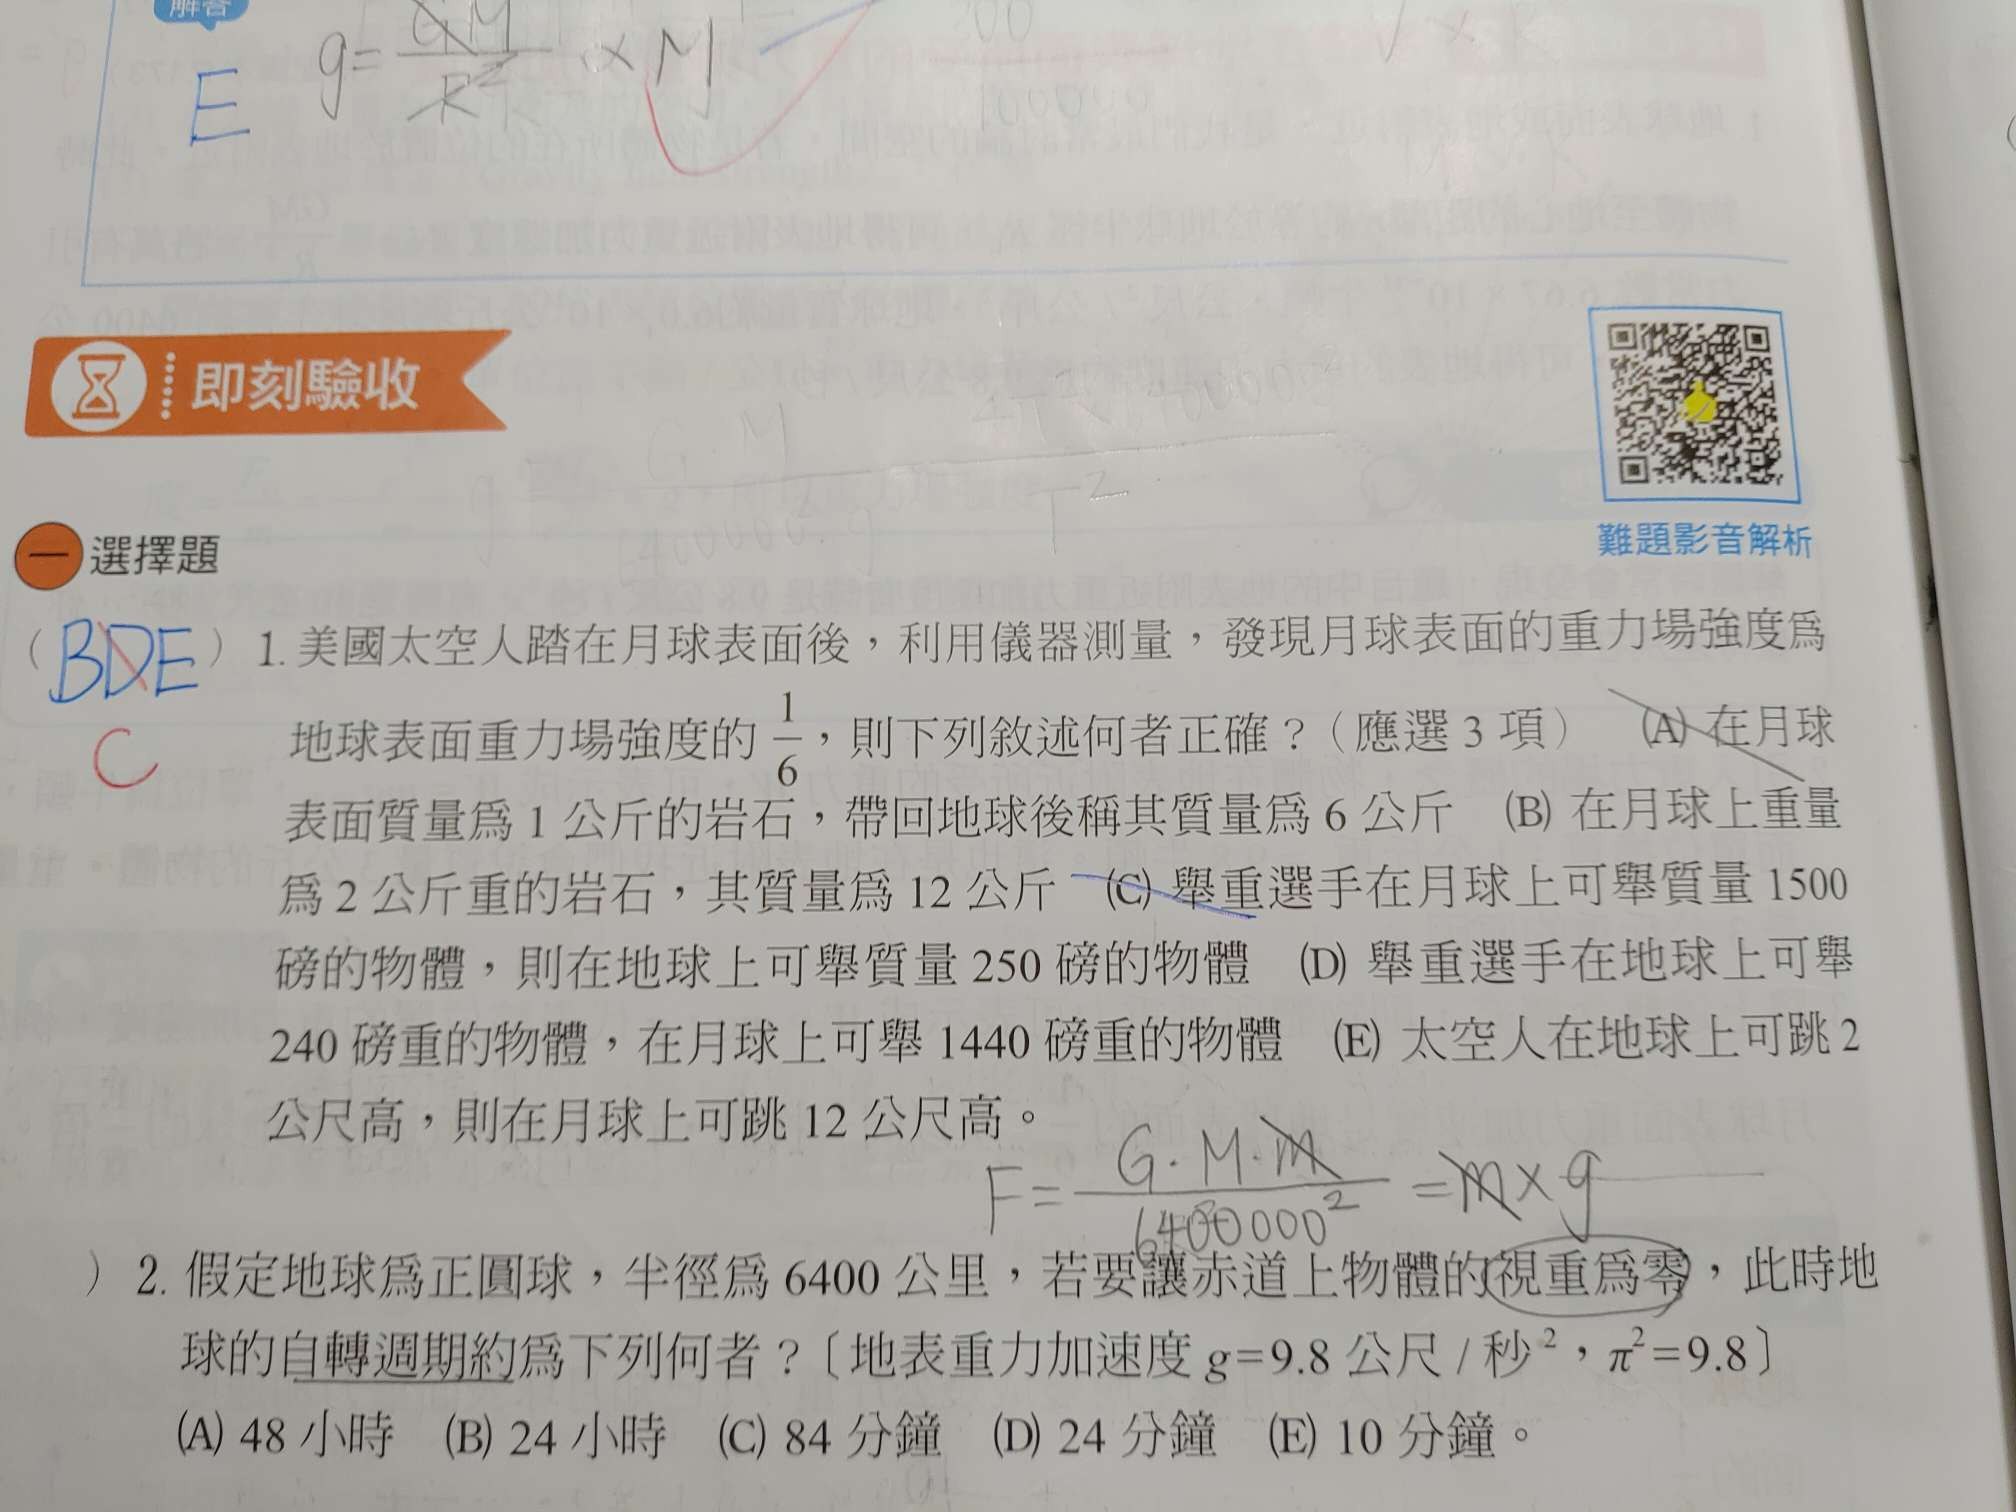 解答
E g = GM/R² × M
即刻驗收
難題影音解析
一 選擇題
(BDE) 1. 美國太空人踏在月球表面後，利用儀器測量，發現月球表面的重力場強度為
C
地球表面重力場強度的 1/6，則下列敘述何者正確？（應選 3 項） (A) 在月球
表面質量為 1 公斤的岩石，帶回地球後稱其質量為 6 公斤 (B) 在月球上重量
為 2 公斤重的岩石，其質量為 12 公斤 (C) 舉重選手在月球上可舉質量 1500
磅的物體，則在地球上可舉質量 250 磅的物體 (D) 舉重選手在地球上可舉
240 磅重的物體，在月球上可舉 1440 磅重的物體 (E) 太空人在地球上可跳 2
公尺高，則在月球上可跳 12 公尺高。
F = G·M·m/6400000² = m×g
) 2. 假定地球為正圓球，半徑為 6400 公里，若要讓赤道上物體的視重為零，此時地
球的自轉週期約為下列何者？〔地表重力加速度 g=9.8 公尺 / 秒²，π²=9.8〕
(A) 48 小時 (B) 24 小時 (C) 84 分鐘 (D) 24 分鐘 (E) 10 分鐘。